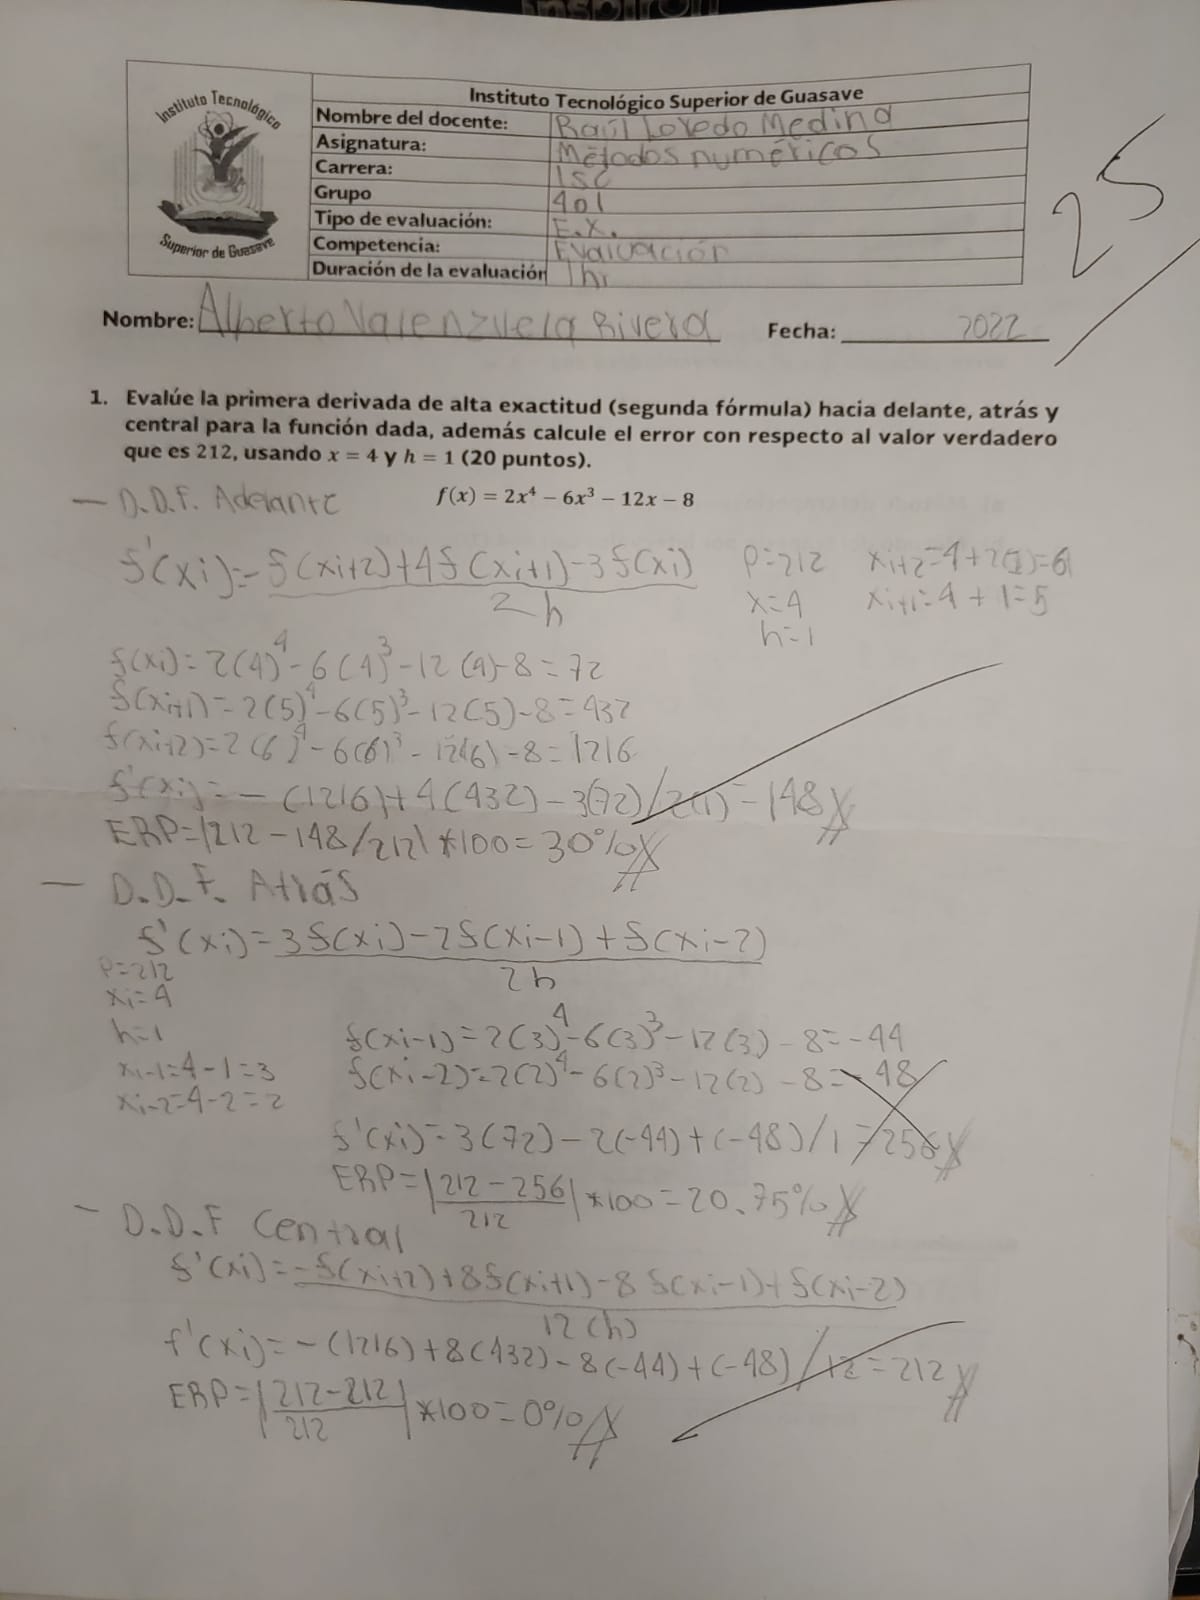 inspiron
Instituto Tecnológico
Superior de Guasave
Instituto Tecnológico Superior de Guasave
Nombre del docente: Raúl Loredo Medina
Asignatura: Métodos numéricos
Carrera: ISC
Grupo 401
Tipo de evaluación: E.X.
Competencia: Evaluación
Duración de la evaluación 1hr
25
Nombre: Alberto Valenzuela Rivera Fecha: 2022
1. Evalúe la primera derivada de alta exactitud (segunda fórmula) hacia delante, atrás y
central para la función dada, además calcule el error con respecto al valor verdadero
que es 212, usando x = 4 y h = 1 (20 puntos).
— D.D.F. Adelante f(x) = 2x⁴ − 6x³ − 12x − 8
f'(xi)=-f(xi+2)+4f(xi+1)-3f(xi) P=212 xi+2=4+2(1)=6
2h x=4 xi+1=4+1=5
h=1
f(xi)=2(4)⁴-6(4)³-12(4)-8=72
f(xi+1)=2(5)⁴-6(5)³-12(5)-8=432
f(xi+2)=2(6)⁴-6(6)³-12(6)-8=1216
f'(xi)=-(1216)+4(432)-3(72)/2(1)=148
ERP=|212-148/212|*100=30%
— D.D.F. Atrás
f'(xi)=3f(xi)-2f(xi-1)+f(xi-2)
2h
P=212
xi=4
h=1
xi-1=4-1=3
xi-2=4-2=2
f(xi-1)=2(3)⁴-6(3)³-12(3)-8=-44
f(xi-2)=2(2)⁴-6(2)³-12(2)-8=-48
f'(xi)=3(72)-2(-44)+(-48)/1=256
ERP=|212-256|*100=20.75%
212
- D.D.F Central
f'(xi)=-f(xi+2)+8f(xi+1)-8f(xi-1)+f(xi-2)
12(h)
f'(xi)=-(1216)+8(432)-8(-44)+(-48)/12=212
ERP=|212-212|*100=0%
212